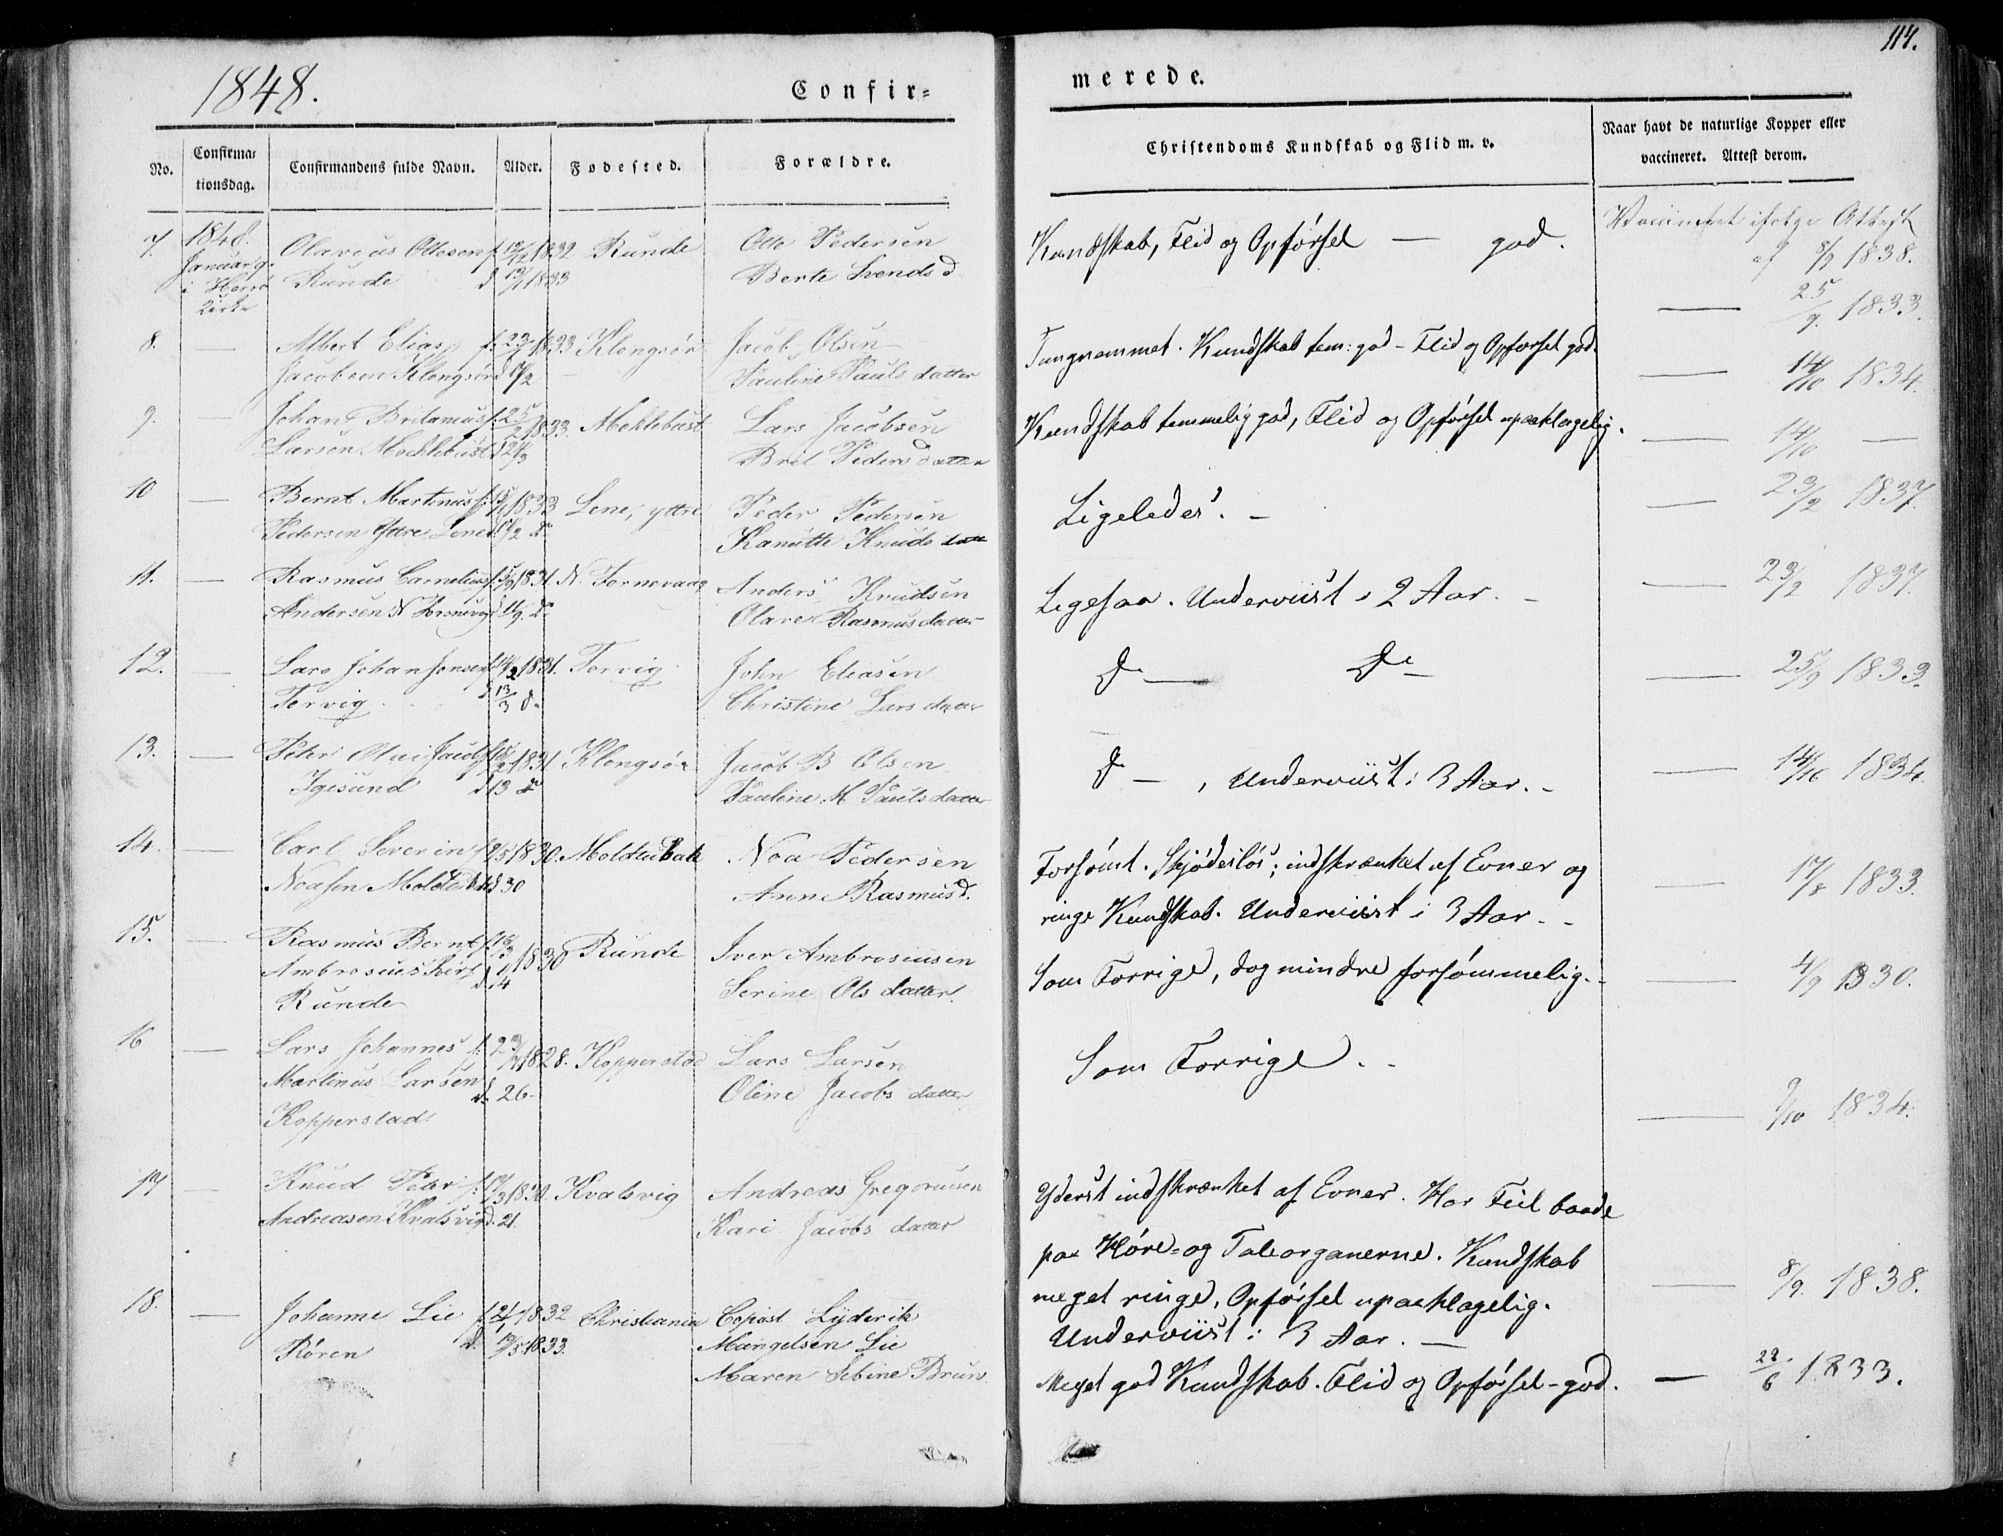 1848.
Confir=
merede.
114.
No.
Confirma=
tionsdag.
Confirmandens fulde Navn.
Alder.
Fødested.
Forældre.
Christendoms Kundskab og Flid m. v.
Naar havt de naturlige Kopper eller
vaccineret. Attest derom.
7. 1848. Olavius Ottesen f. 1832 Runde Otte Pedersen
Januar 9. Runde d 1833 Berte Svendsd
Kirke
Kundskab, Flid og Opførsel — god.
Vaccineret ifølge Attest
af 8/9 1838.
8. — Albert Elias f. 1833 Klongsør Jacob Olsen
Jacobsen Klongsør d Pauline Pauls datter
Tungnemmet. Kundskab tem: god - Flid og Opførsel god.
— 25/9. 1833.
9. — Johan Britanius f. 25/2 1833. Moklebust Lars Jacobsen
Larsen Moklebust Brit Peders datter
Kundskab temmelig god, Flid og Opførsel upaaklagelig.
— 14/10 1834.
10 — Bernt Martinus f. 1833 Lene, yttre Peder Pedersen
Pedersen Yttre Lene Kanutte Knuds datt
Ligeledes. —
— 14/10 —
— 23/2 1837.
11. — Rasmus Cornelius f. 1831. N. Tornevaag Anders Knudsen
Andersen N Olave Rasmus datter
Ligesaa. Underviist i 2 Aar. —
— 23/2 1837.
12. — Lars Johan Jonsen f. 14/2 1831. Torvig John Eliasen
Torvig. d 13/3 do Christine Lars datter
do — do —
— 25/9 1833.
13. — Peter Olai Jacobs 1831 Klongsør Jacob B Olsen
Igesund Pauline M Pauls datter
do — , Underviist i 3 Aar. —
— 14/10 1834.
14. — Carl Severin f 1830. Moldtubak Noa Pedersen
Noasen d 30 Anne Rasmusd.
Forsømt. Skjødesløs; indskrænket af Evner og
ringe Kundskab. Underviist i 3 Aar. —
— 17/8 1833.
15. — Rasmus Bernt f. 1830 Runde Iver Ambrosiusen
Ambrosius Ivers d 14 Serine Ols datter.
Runde
Som Forrige, dog mindre forsømmelig. —
— 4/9 1830.
16 — Lars Johannes f. 1828. Kopperstad Lars Larsen
Martinus Larsen d. 26 Oline Jacobs datter
Kopperstad
Som Forrige. —
— 9/10 1834.
17 — Knud Peter f. 1830. Kvalsvig Andreas Gregoriusen
Andreasen Kvalsvig d. 21. Kari Jacobs datter
Yderst indskrænket af Evner. Har Feil baade
paa Høre- og Taleorganerne. Kundskab
meget ringe, Opførsel upaaklagelig.
Underviist i 3 Aar. —
— 8/9. 1838.
18. — Johanne Lie f. 1832 Christiania Copist Lyderik
Røren d. 1833. Mangelsen Lie
Maren Sebine Brun.
Meget god Kundskab. Flid og Opførsel - god.
— 28/6 1833.